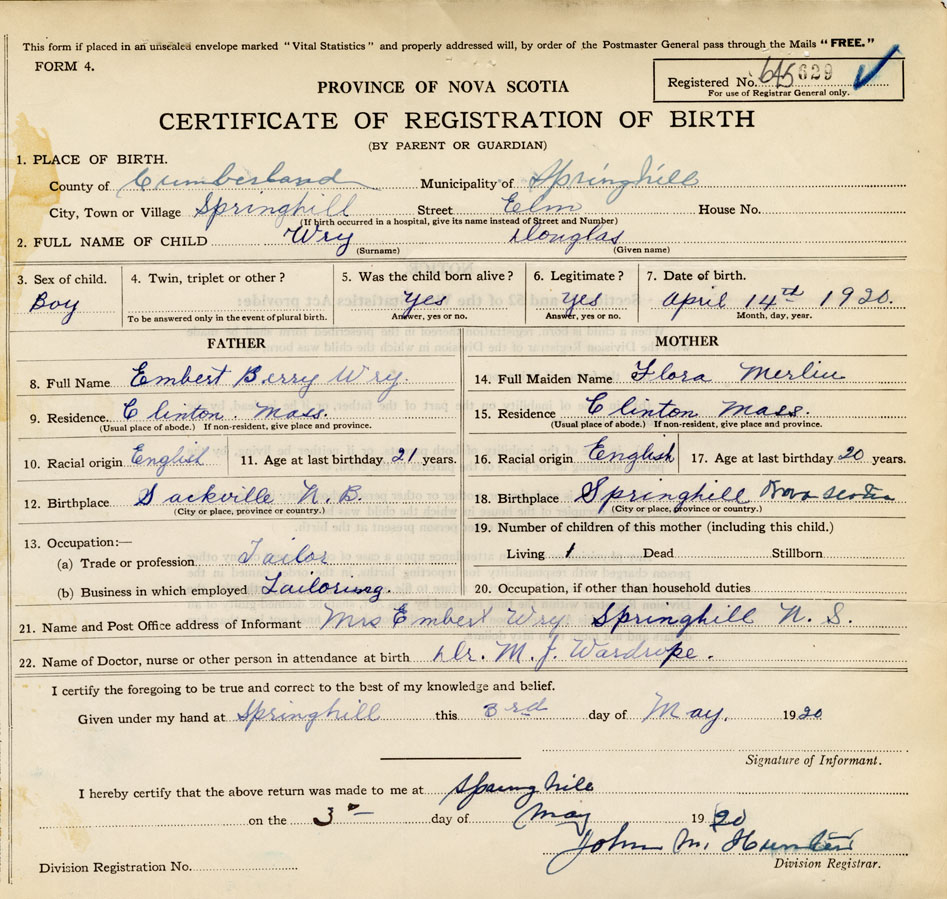 This form if placed in an unsealed envelope marked "Vital Statistics" and properly addressed will, by order of the Postmaster General pass through the Mails "FREE."
FORM 4.
Registered No. 645 629
For use of Registrar General only.
PROVINCE OF NOVA SCOTIA
CERTIFICATE OF REGISTRATION OF BIRTH
(BY PARENT OR GUARDIAN)
1. PLACE OF BIRTH.
County of Cumberland Municipality of Springhill
City, Town or Village Springhill Street Elm House No.
(If birth occurred in a hospital, give its name instead of Street and Number)
2. FULL NAME OF CHILD Wry Douglas
(Surname) (Given name)
3. Sex of child. 4. Twin, triplet or other? 5. Was the child born alive? 6. Legitimate? 7. Date of birth.
Boy Yes Yes April 14th 1920.
To be answered only in the event of plural birth. Answer, yes or no. Answer, yes or no. Month, day, year.
FATHER MOTHER
8. Full Name Embert Berry Wry. 14. Full Maiden Name Flora Merlin
9. Residence. Clinton. Mass. 15. Residence Clinton Mass.
(Usual place of abode.) If non-resident, give place and province. (Usual place of abode.) If non-resident, give place and province.
10. Racial origin English 11. Age at last birthday 21 years. 16. Racial origin English 17. Age at last birthday 20 years.
12. Birthplace Sackville N.B. 18. Birthplace Springhill Nova Scotia
(City or place, province or country.) (City or place, province or country.)
19. Number of children of this mother (including this child.)
13. Occupation:—
(a) Trade or profession Tailor Living 1 Dead Stillborn
(b) Business in which employed Tailoring. 20. Occupation, if other than household duties
21. Name and Post Office address of Informant Mrs Embert Wry Springhill N. S.
22. Name of Doctor, nurse or other person in attendance at birth Dr. M. J. Wardrope.
I certify the foregoing to be true and correct to the best of my knowledge and belief.
Given under my hand at Springhill this 3rd day of May, 1920
Signature of Informant.
I hereby certify that the above return was made to me at Springhill
on the 3 day of May 1920
John M. Hunter
Division Registration No. Division Registrar.